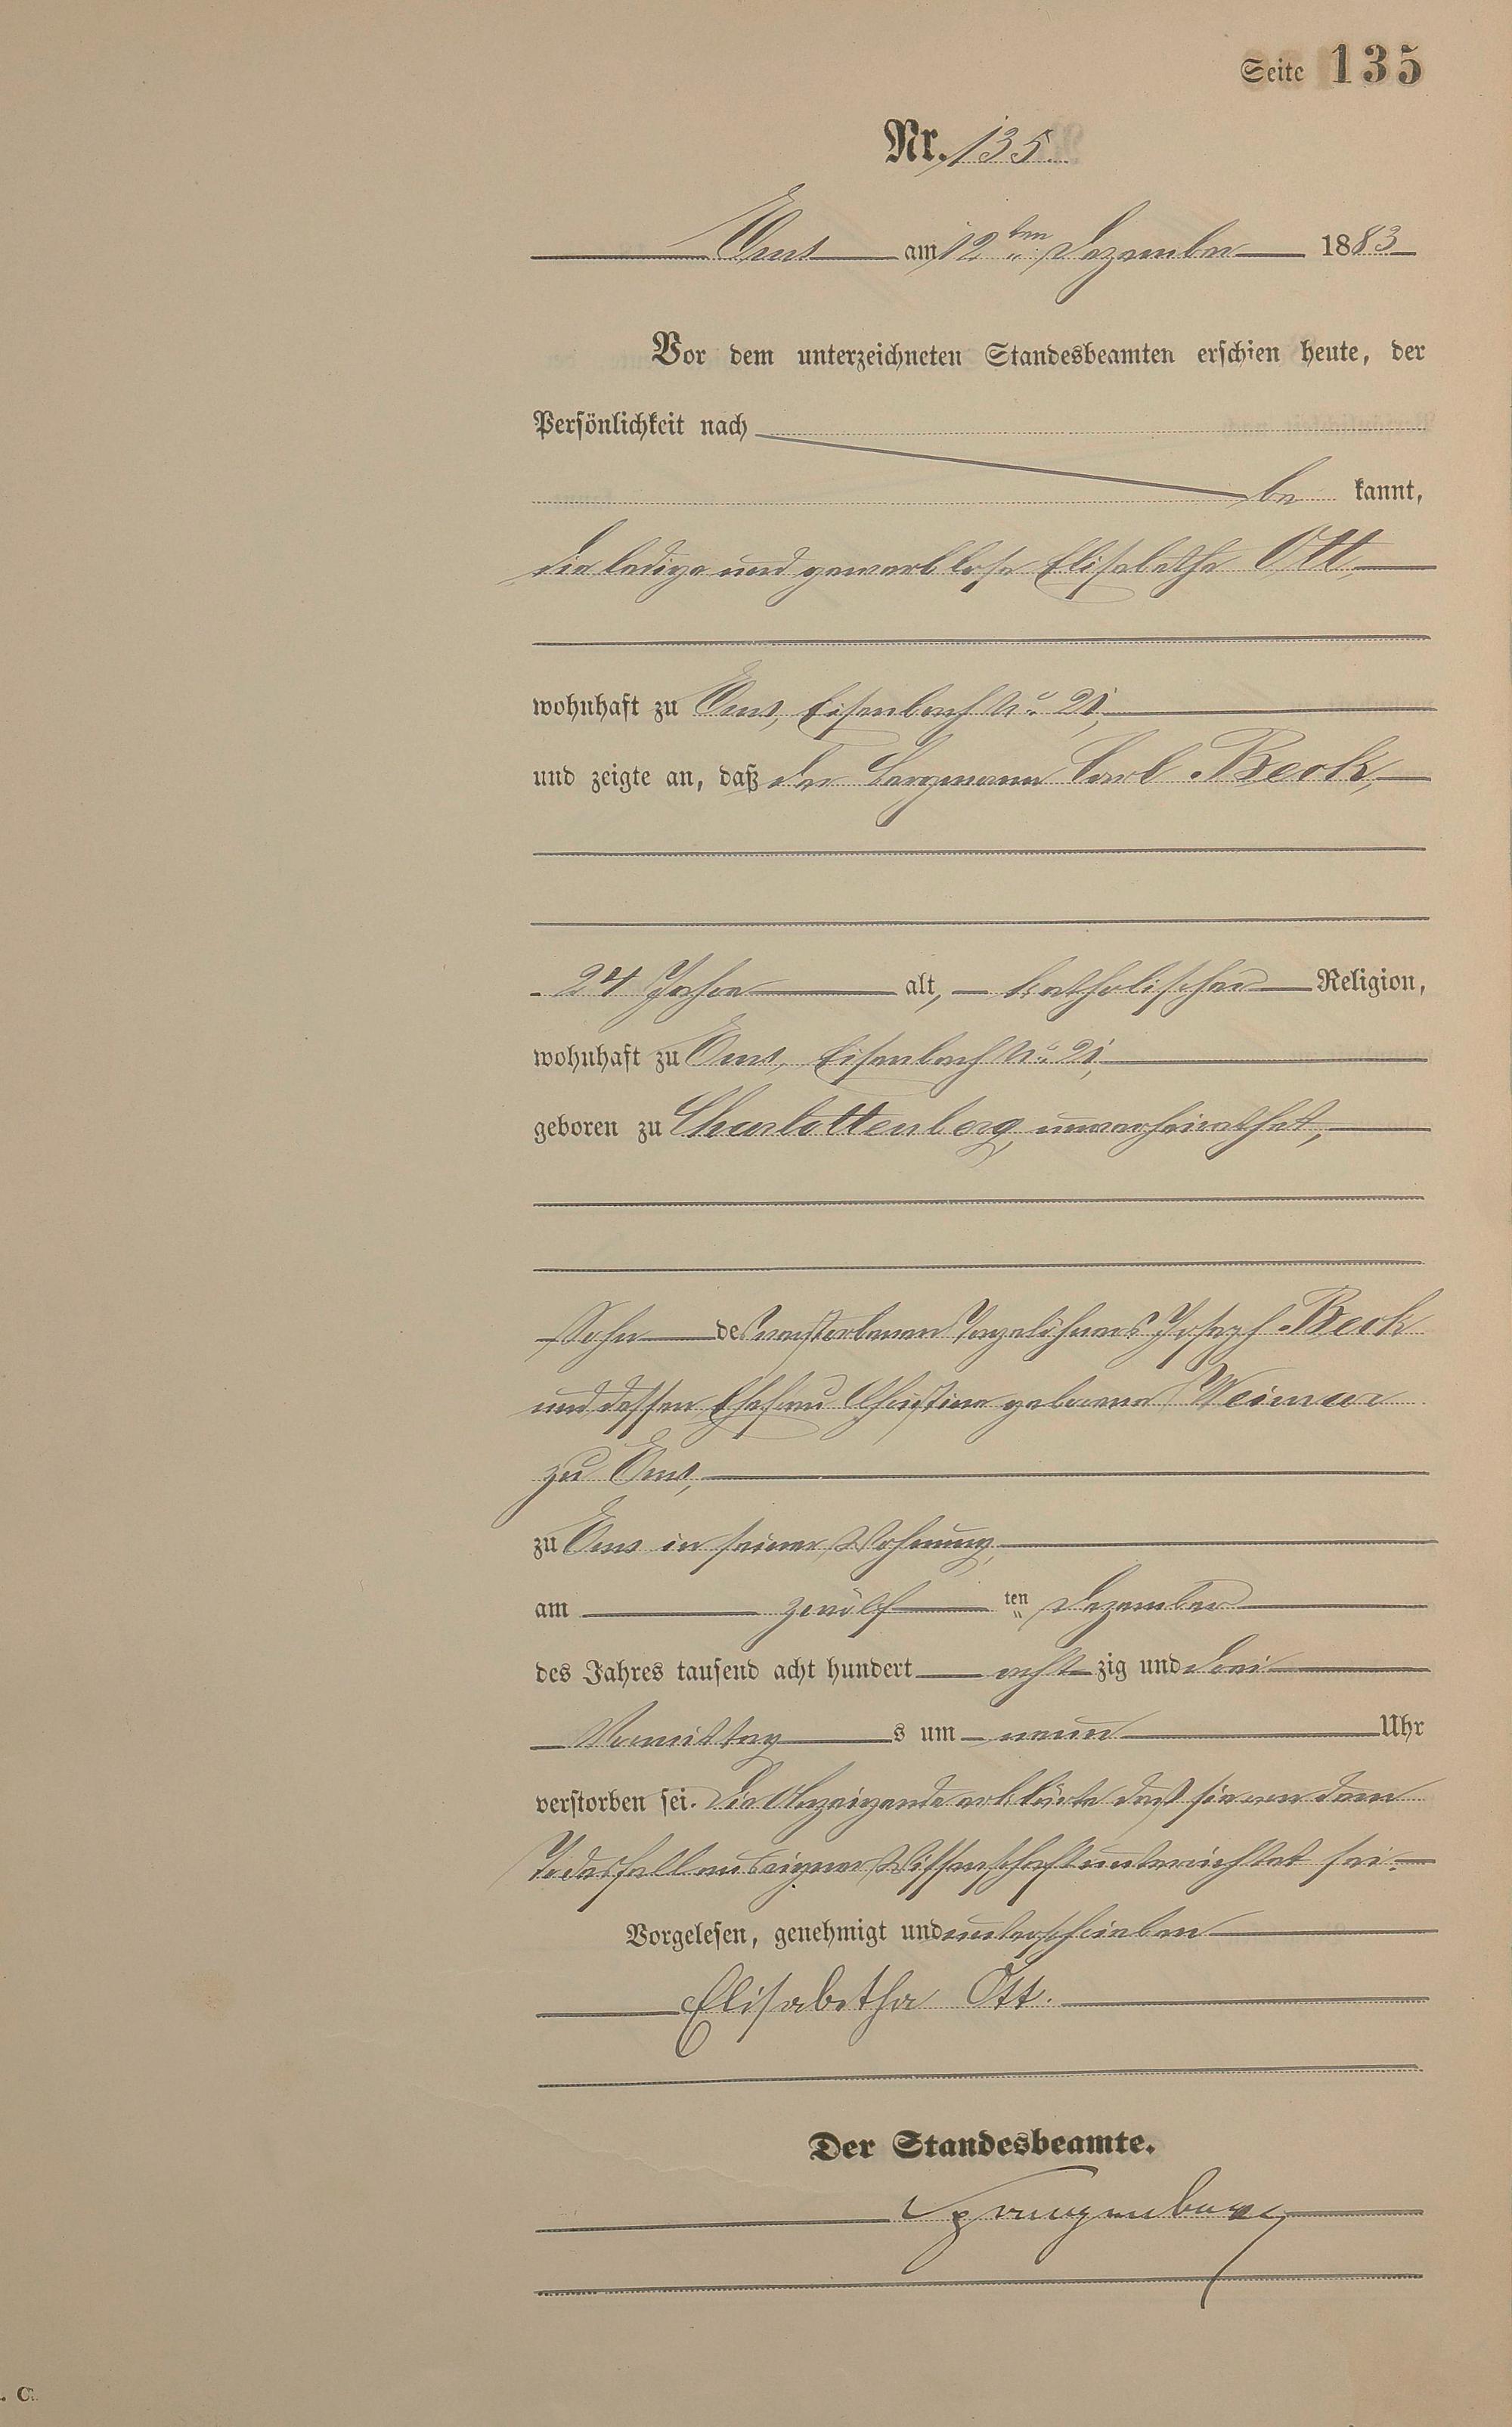 Seite 135
Nr. 135.
Ems am 12ten Dezember 1883
Vor dem unterzeichneten Standesbeamten erschien heute, der
Persönlichkeit nach
be kannt,
die ledige und gewerblose Elisabetha Ott,
wohnhaft zu Ems, Eisenbach No. 21,
und zeigte an, daß der Bergmann Carl Beck,
24 Jahre alt, katholischer Religion,
wohnhaft zu Ems, Eisenbach No. 21,
geboren zu Charlottenberg, unverheirathet,
Sohn des verstorbenen Tagelöhners Joseph Beck
und dessen Ehefrau Christine geborene Weimar
zu Ems,
zu Ems in seiner Wohnung,
am zwölf ten Dezember
des Jahres tausend acht hundert acht zig und drei
Vormittag s um neun Uhr
verstorben sei. Die Anzeigende erklärte daß sie von dem
Todesfall aus eigner Wissenschaft unterrichtet sei.
Vorgelesen, genehmigt und unterschrieben
Elisabetha Ott.
Der Standesbeamte.
. C.